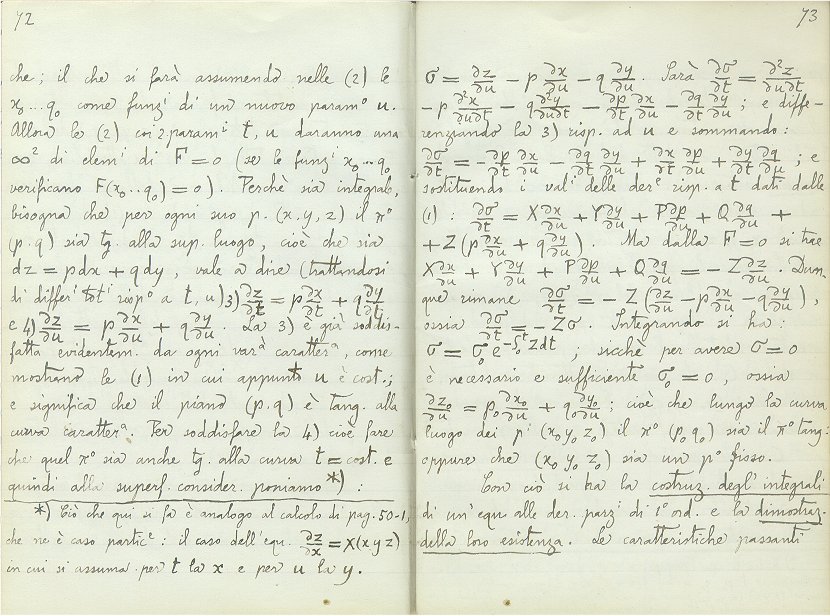 72
che; il che si farà assumendo nelle (2) le
x₀...q₀ come funz.ⁱ di un nuovo param.º u.
Allora le (2) coi 2 param.ⁱ t, u daranno una
∞² di elem.ⁱ di F=0 (se le funz.ⁱ x₀...q₀
verificano F(x₀...q₀)=0). Perchè sia integrale,
bisogna che per ogni suo p. (x,y,z) il πº
(p.q) sia tg. alla sup. luogo, cioè che sia
dz = pdx + qdy, vale a dire (trattandosi
di differ.ⁱ totⁱ rispº a t, u) 3) ∂z/∂t = p ∂x/∂t + q ∂y/∂t
e 4) ∂z/∂u = p ∂x/∂u + q ∂y/∂u. La 3) è già soddis-
fatta evidentem. da ogni var.ᵃ caratter.ᵃ, come
mostrano le (1) in cui appunto u è cost.;
e significa che il piano (p.q) è tang. alla
curva caratter.ᵃ. Per soddisfare la 4) cioè fare
che quel πº sia anche tg. alla curva t=cost. e
quindi alla superf. consider. poniamo *) :
*) Ciò che qui si fa è analogo al calcolo di pag. 50-1,
che ne è caso partic.ᵉ : il caso dell'equ. ∂z/∂x = X(xyz)
in cui si assuma per t la x e per u la y.
73
σ = ∂z/∂u - p ∂x/∂u - q ∂y/∂u. Sarà ∂σ/∂t = ∂²z/∂u∂t
- p ∂²x/∂u∂t - q ∂²y/∂u∂t - ∂p/∂t ∂x/∂u - ∂q/∂t ∂y/∂u; e diffe-
renziando la 3) risp. ad u e sommando:
∂σ/∂t = - ∂p/∂t ∂x/∂u - ∂q/∂t ∂y/∂u + ∂x/∂t ∂p/∂u + ∂y/∂t ∂q/∂u; e
sostituendo i val.ⁱ delle der.ᵉ risp. a t dati dalle
(1) : ∂σ/∂t = X ∂x/∂u + Y ∂y/∂u + P ∂p/∂u + Q ∂q/∂u +
+ Z (p ∂x/∂u + q ∂y/∂u). Ma dalla F=0 si trae
X ∂x/∂u + Y ∂y/∂u + P ∂p/∂u + Q ∂q/∂u = - Z ∂z/∂u. Dun-
que rimane ∂σ/∂t = - Z (∂z/∂u - p ∂x/∂u - q ∂y/∂u),
ossia ∂σ/∂t = - Zσ. Integrando si ha:
σ = σ₀ e^(-∫₀ᵗ Zdt) ; sicchè per avere σ=0
è necessario e sufficiente σ₀=0, ossia
∂z₀/∂u = p₀ ∂x₀/∂u + q₀ ∂y₀/∂u; cioè che lungo la curva
luogo dei pⁱ (x₀ y₀ z₀) il πº (p₀ q₀) sia il πº tang.
oppure che (x₀ y₀ z₀) sia un pº fisso.
Con ciò si ha la costruz. degl' integrali
di un'equ. alle der. parz.ⁱ di 1º ord. e la dimostraz.
della loro esistenza. Le caratteristiche passanti